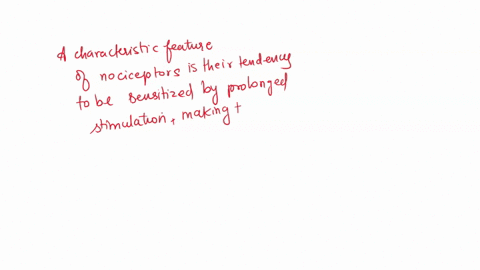 A characteristic feature
of nociceptors is their tendency
to be sensitized by prolonged
stimulation, making t